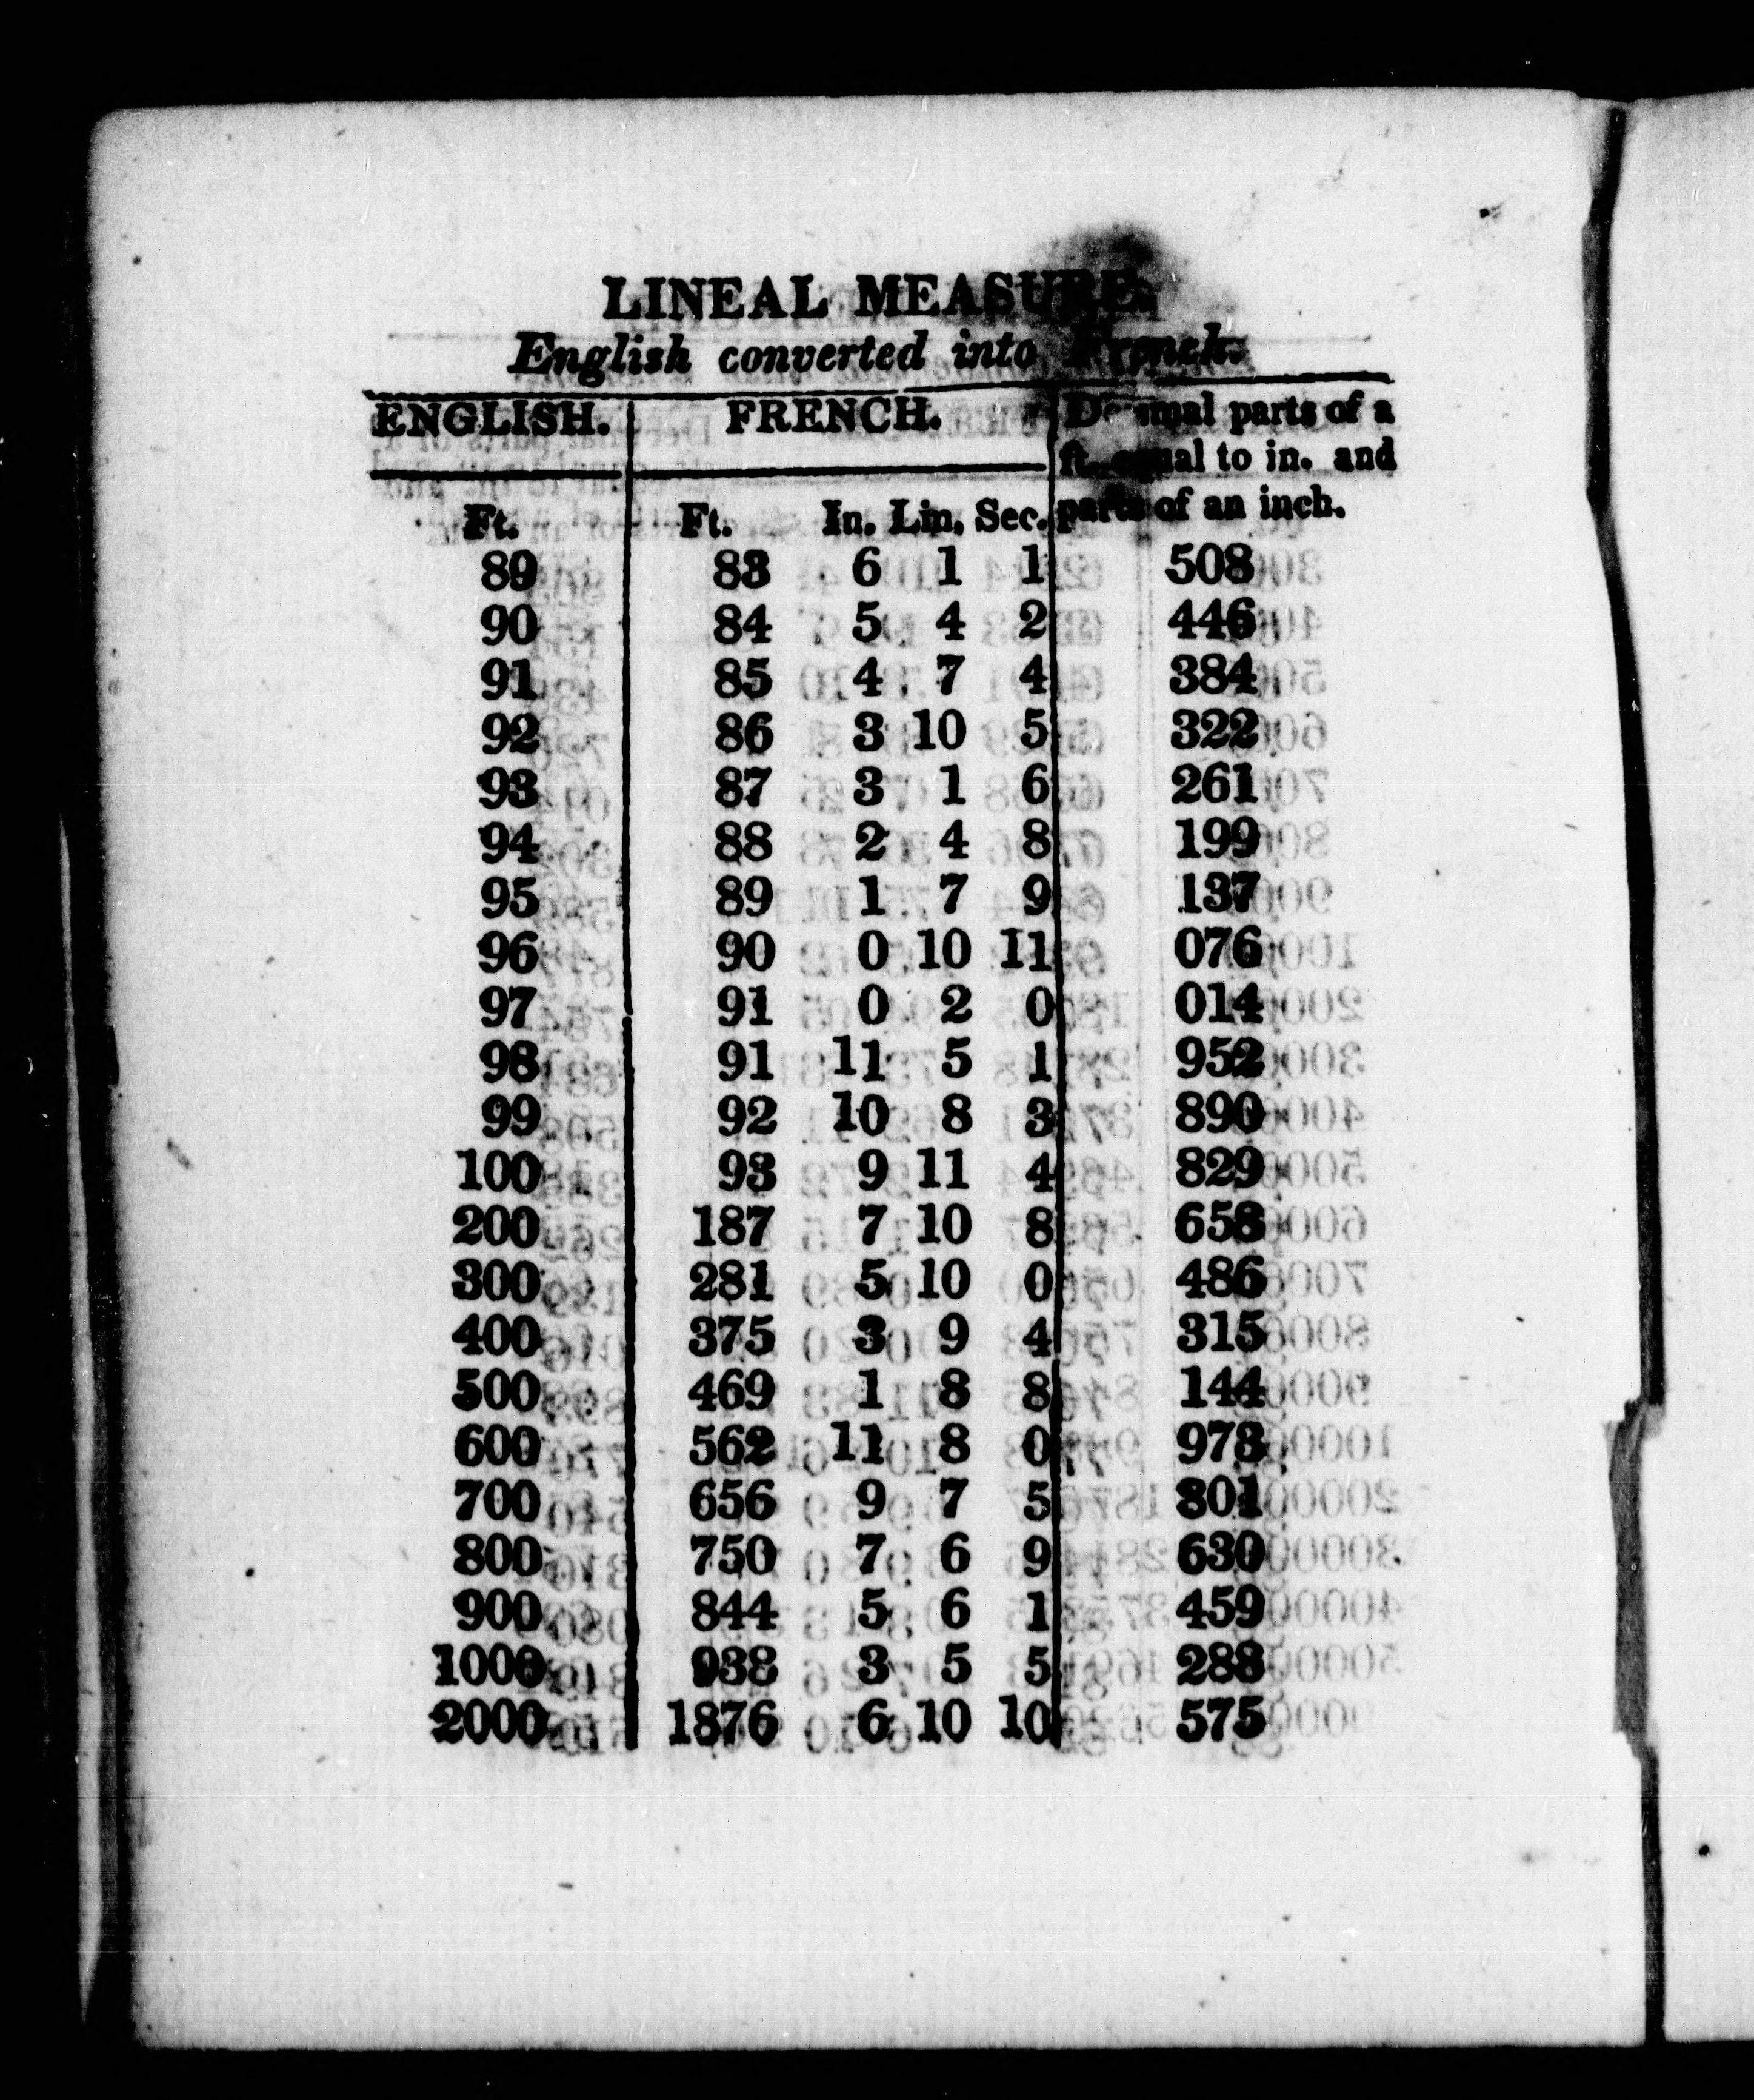 LINEAL MEASURE.
English converted into French.
ENGLISH. FRENCH. Decimal parts of a
ft. equal to in. and
Ft. Ft. In. Lin. Sec. parts of an inch.
89 83 6 1 1 508
90 84 5 4 2 446
91 85 4 7 4 384
92 86 3 10 5 322
93 87 3 1 6 261
94 88 2 4 8 199
95 89 1 7 9 137
96 90 0 10 11 076
97 91 0 2 0 014
98 91 11 5 1 952
99 92 10 8 3 890
100 93 9 11 4 829
200 187 7 10 8 658
300 281 5 10 0 486
400 375 3 9 4 315
500 469 1 8 8 144
600 562 11 8 0 973
700 656 9 7 5 801
800 750 7 6 9 630
900 844 5 6 1 459
1000 938 3 5 5 288
2000 1876 6 10 10 575